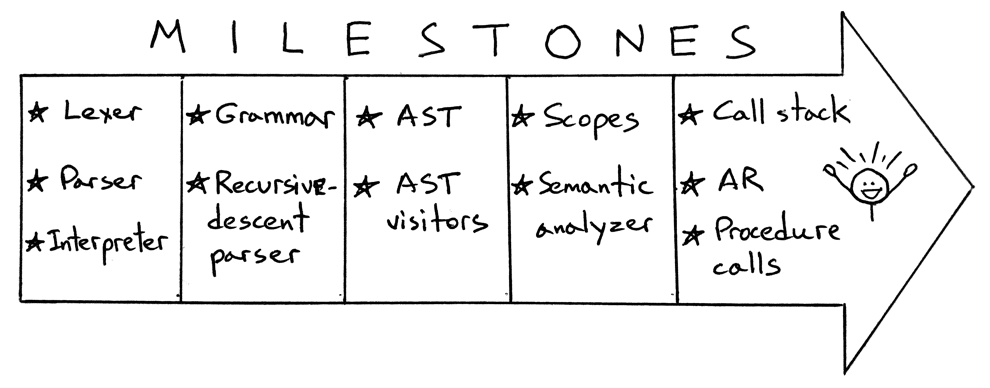 MILESTONES
★ Lexer
★ Parser
★ Interpreter
★ Grammar
★ Recursive-
descent
parser
★ AST
★ AST
visitors
★ Scopes
★ Semantic
analyzer
★ Call stack
★ AR
★ Procedure
calls